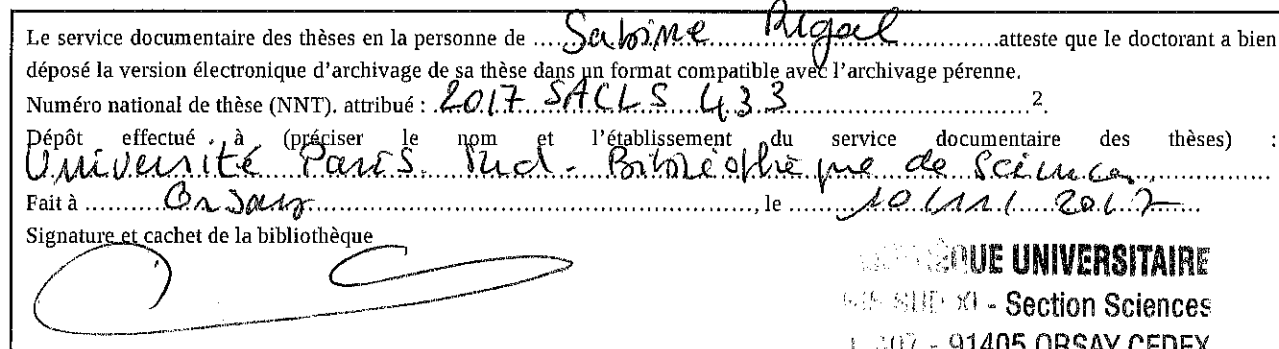 Le service documentaire des thèses en la personne de ....Sabine Rigal....atteste que le doctorant a bien
déposé la version électronique d'archivage de sa thèse dans un format compatible avec l'archivage pérenne.
Numéro national de thèse (NNT). attribué : 2017 SACLS 433 2.
Dépôt effectué à (préciser le nom et l'établissement du service documentaire des thèses) :
Université Paris Sud - Bibliothèque de Sciences
Fait à ....Orsay...., le ....10/11/2017....
Signature et cachet de la bibliothèque
QUE UNIVERSITAIRE
SUD XI - Section Sciences
91405 ORSAY CEDEX